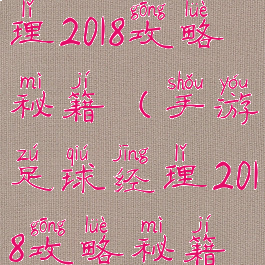 lǐ gōng lüè
理2018攻略
mì jí shǒu yóu
秘籍（手游
zú qiú jīng lǐ
足球经理201
gōng lüè mì jí
8攻略秘籍